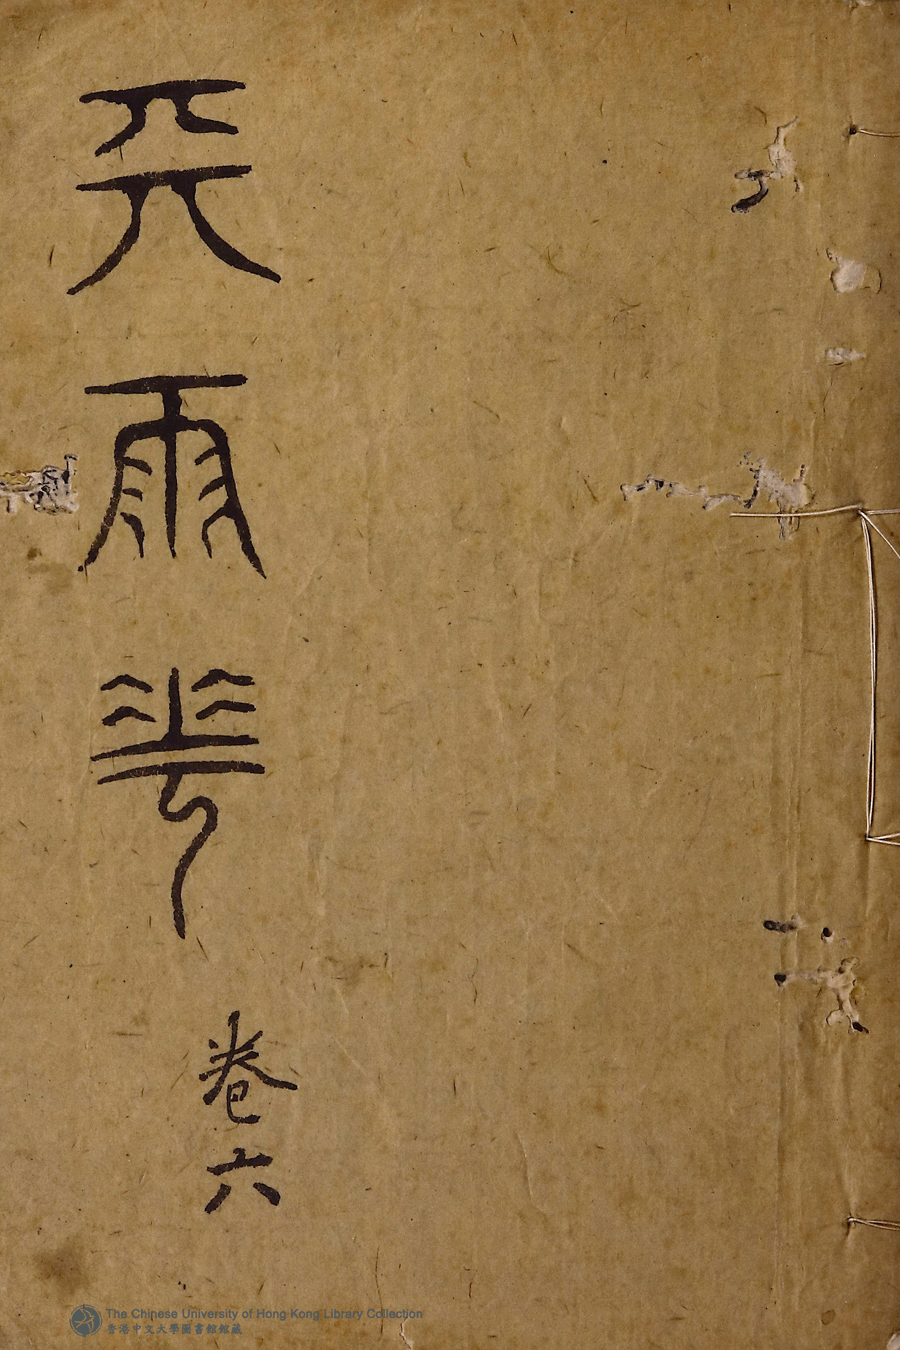 天雨花
卷六
The Chinese University of Hong Kong Library Collection
香港中文大學圖書館館藏